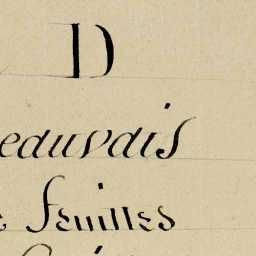 D
eauvais
feuilles